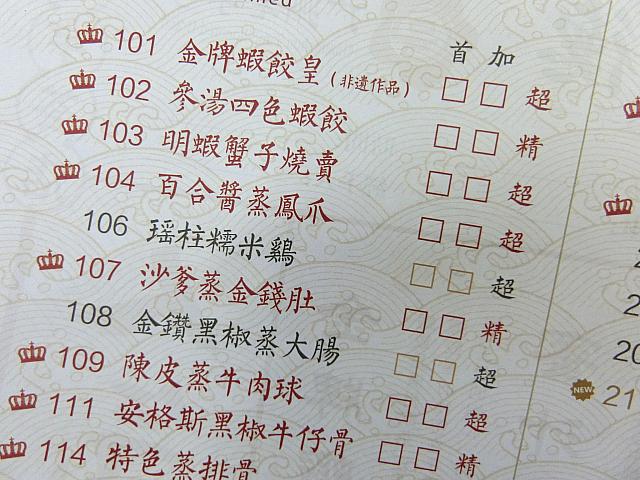 首 加
101 金牌蝦餃皇(非遺作品) □ □ 超
102 參湯四色蝦餃 □ □ 精
103 明蝦蟹子燒賣 □ □ 超
104 百合醬蒸鳳爪 □ □ 超
106 瑶柱糯米鷄 □ □ 超
107 沙爹蒸金錢肚 □ □ 精
108 金鑽黑椒蒸大腸 □ □ 超
109 陳皮蒸牛肉球 □ □ 超
111 安格斯黑椒牛仔骨 □ □ 精
114 特色蒸排骨
NEW